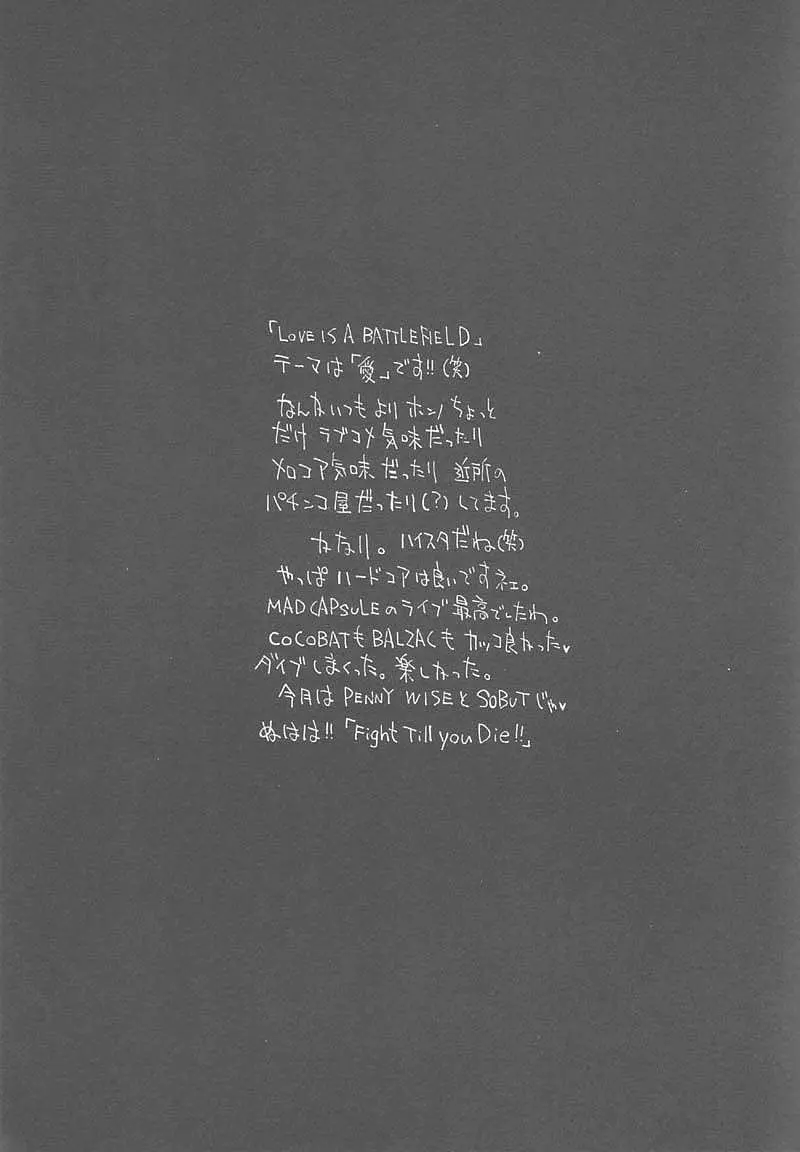 「LOVE IS A BATTLEFIELD」
テーマは「愛」です!!(笑)
なんかいつもより ホンノ ちょっと
だけ ラブコメ気味だったり
メロコア気味だったり 近所の
パチンコ屋だったり(?)してます。
かなり。ハイスタだね(笑)
やっぱ ハードコアは良いですネェ。
MAD CAPSULEのライブ 最高でしたわ。
COCOBATも BALZACも カッコ良かった♥
ダイブしまくった。楽しかった。
今月は PENNY WISEと SOBUTじゃ♥
ぬはは!!「Fight Till you Die!!」